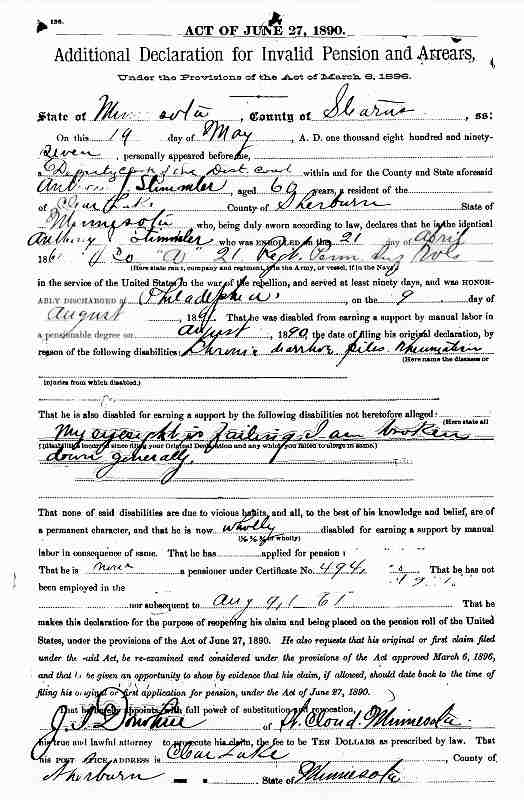 ACT OF JUNE 27, 1890.
Additional Declaration for Invalid Pension and Arrears,
Under the Provisions of the Act of March 6, 1896.
State of Minnesota, County of Stearns, ss:
On this 19 day of May, A. D. one thousand eight hundred and ninety-
seven, personally appeared before me,
a Deputy clerk of the Dist court within and for the County and State aforesaid
Anthony J Stimmler, aged 69 years, a resident of the
of Clear Lake County of Sherburn State of
Minnesota who, being duly sworn according to law, declares that he is the identical
Anthony J Stimmler who was ENROLLED on the 21 day of April
1861 Co "A" 21 Regt. Penn Vols
(Here state rank, company and regiment, if in the Army, or vessel, if in the Navy.)
in the service of the United States in the war of the rebellion, and served at least ninety days, and was HONOR-
ABLY DISCHARGED at Philadelphia, on the 9 day of
August, 186. That he was disabled from earning a support by manual labor in
a pensionable degree on August, 1890, the date of filing his original declaration, by
reason of the following disabilities: Chronic diarrhoe piles Rheumatism
(Here name the diseases or
injuries from which disabled.)
That he is also disabled for earning a support by the following disabilities not heretofore alleged:
(Here state all
My eyesight is failing I am broken
disabilities incurred since filing your Original Declaration and any which you failed to allege in same.)
down generally.
That none of said disabilities are due to vicious habits, and all, to the best of his knowledge and belief, are of
a permanent character, and that he is now wholly disabled for earning a support by manual
labor in consequence of same. That he has applied for pension
That he is none a pensioner under Certificate No. 494, That he has not
been employed in the
nor subsequent to Aug 9, 1 61 That he
makes this declaration for the purpose of reopening his claim and being placed on the pension roll of the United
States, under the provisions of the Act of June 27, 1890. He also requests that his original or first claim filed
under the said Act, be re-examined and considered under the provisions of the Act approved March 6, 1896,
and that he be given an opportunity to show by evidence that his claim, if allowed, should date back to the time of
filing his original or first application for pension, under the Act of June 27, 1890.
That he hereby appoints, with full power of substitution and revocation,
of St. Cloud, Minnesota
his true and lawful attorney to prosecute his claim, the fee to be TEN DOLLARS as prescribed by law. That
his POST OFFICE ADDRESS is Clear Lake, County of
Sherburn State of Minnesota